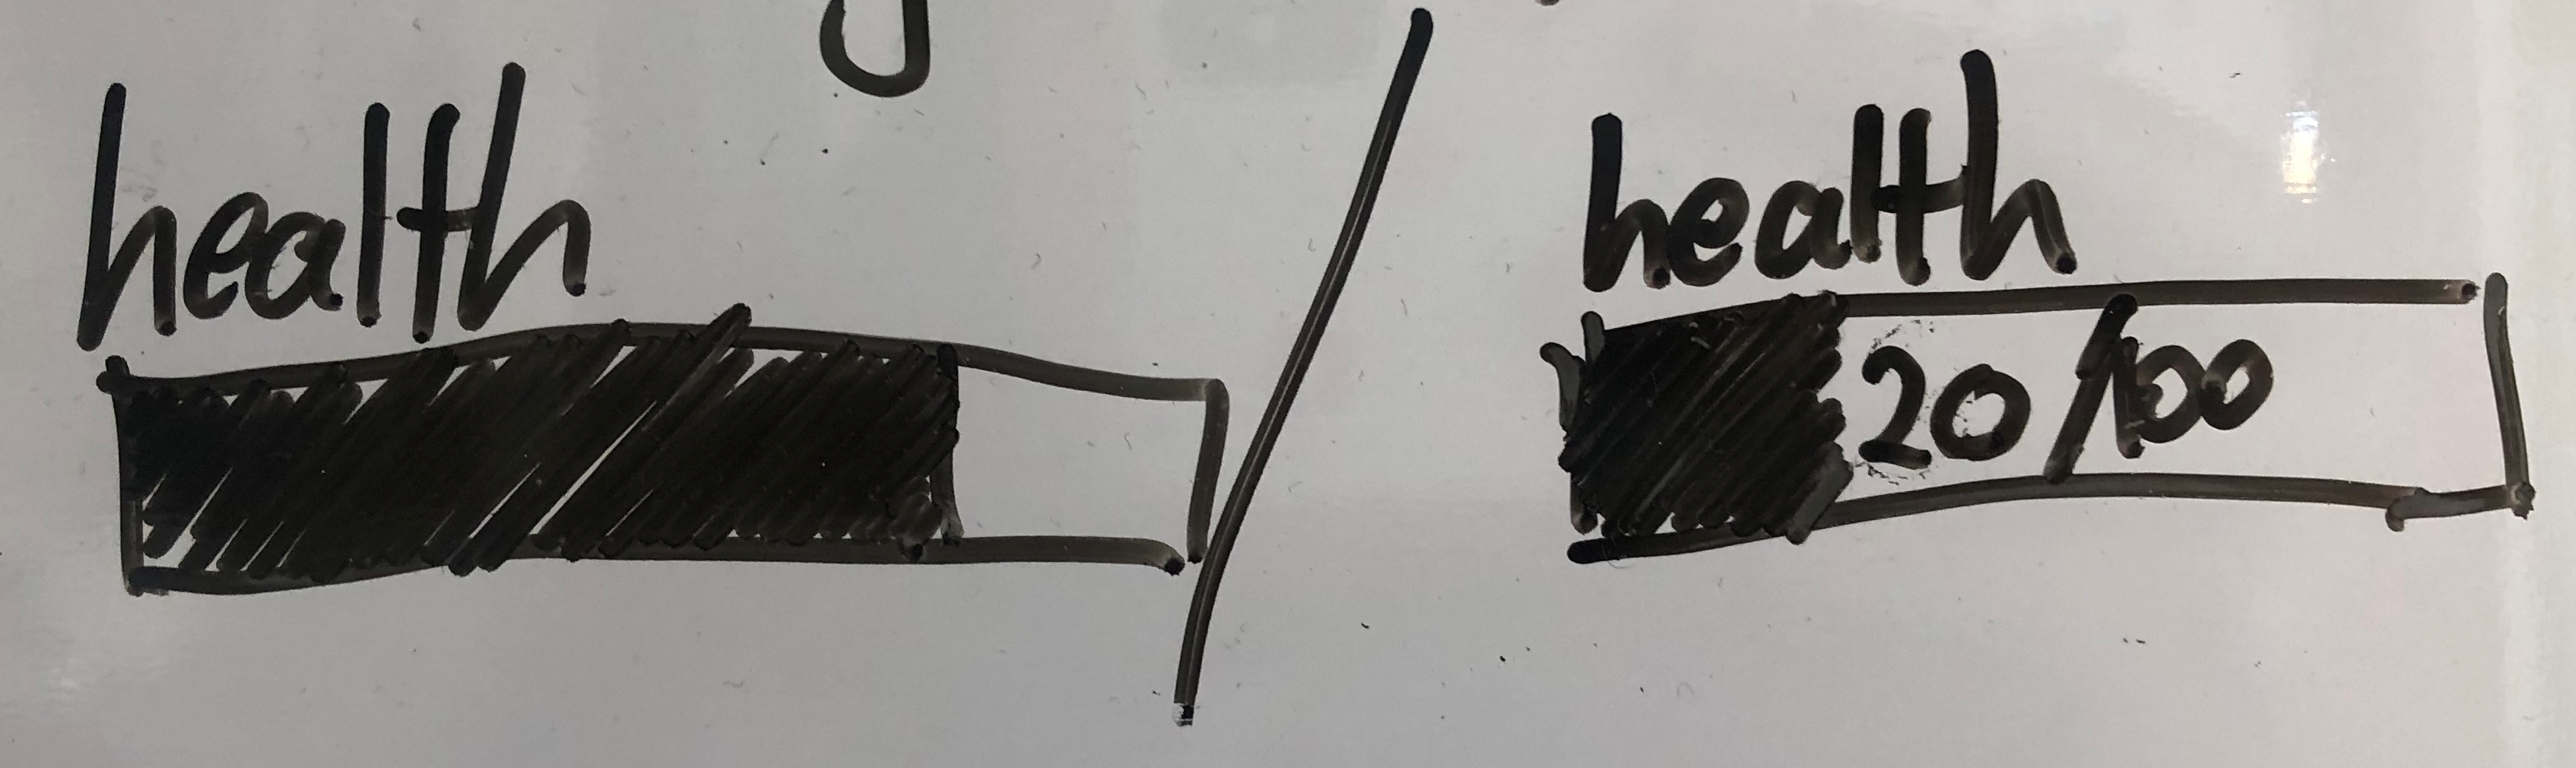 health
health
20/100